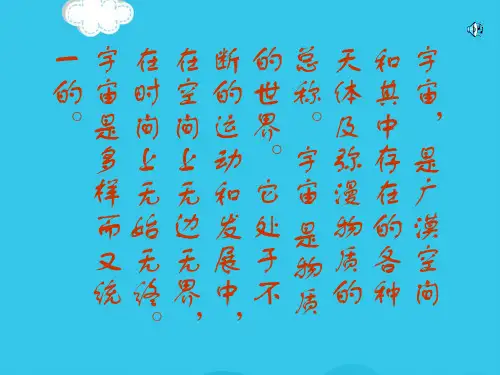 宇宙，是广漠空间
和其中存在的各种
天体及弥漫物质的
总称。宇宙是物质
的世界。它处于不
断的运动和发展中，
在空间上无边无界，
在时间上无始无终。
宇宙是多样而又统
一的。